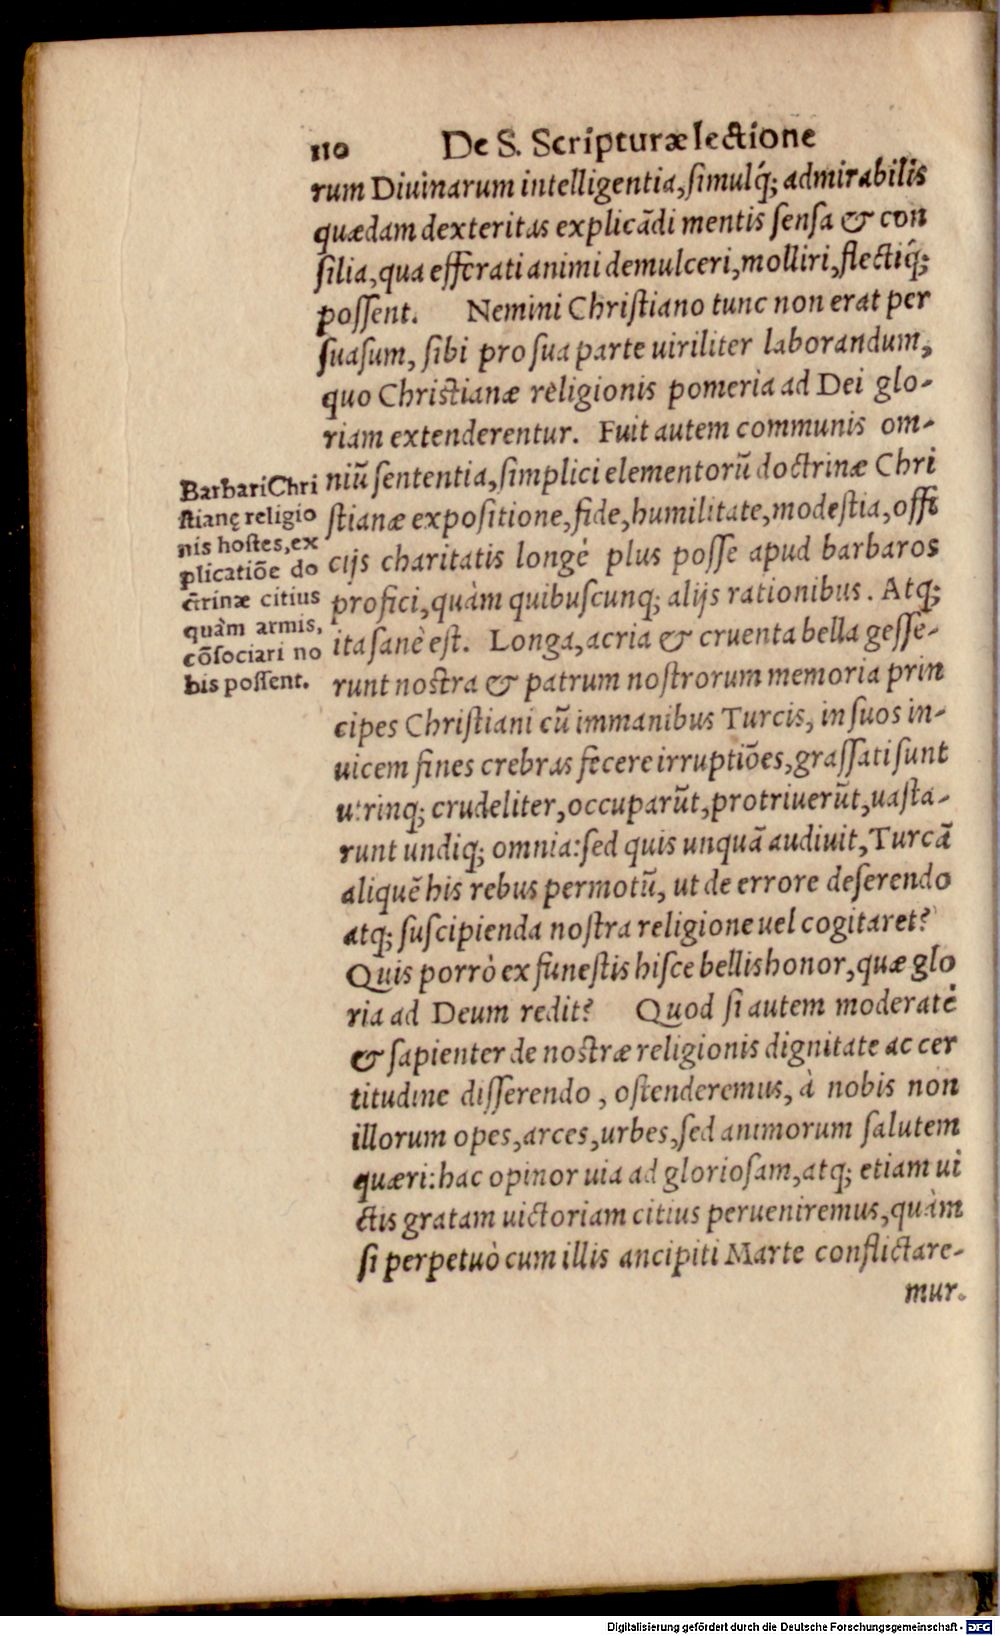 110 De S. Scripturæ lectione
rum Diuinarum intelligentia, simulq́; admirabilis
quædam dexteritas explicãdi mentis sensa & con
silia, qua efferati animi demulceri, molliri, flectiq́;
possent. Nemini Christiano tunc non erat per
suasum, sibi pro sua parte uiriliter laborandum,
quo Christianæ religionis pomeria ad Dei glo-
riam extenderentur. Fuit autem communis om-
niũ sententia, simplici elementorũ doctrinæ Chri
stianæ expositione, fide, humilitate, modestia, offi
cijs charitatis longè plus posse apud barbaros
profici, quàm quibuscunq; alijs rationibus. Atq;
ita sanè est. Longa, acria & cruenta bella gesse-
runt nostra & patrum nostrorum memoria prin
cipes Christiani cũ immanibus Turcis, in suos in-
uicem fines crebras fecere irruptiões, grassati sunt
utrinq; crudeliter, occuparũt, protriuerũt, uasta-
runt undiq; omnia: sed quis unquã audiuit, Turcã
aliquẽ his rebus permotũ, ut de errore deserendo
atq; suscipienda nostra religione uel cogitaret?
Quis porrò ex funestis hisce bellis honor, quæ glo
ria ad Deum redit? Quod si autem moderatè
& sapienter de nostræ religionis dignitate ac cer
titudine disserendo, ostenderemus, à nobis non
illorum opes, arces, urbes, sed animorum salutem
quæri: hac opinor uia ad gloriosam, atq; etiam ui
ctis gratam uictoriam citius perueniremus, quàm
si perpetuò cum illis ancipiti Marte conflictare-
mur.
Barbari Chri
stianę religio
nis hostes, ex
plicatiõe do
ctrinæ citius
quàm armis,
cõsociari no
bis possent.
Digitalisierung gefördert durch die Deutsche Forschungsgemeinschaft - DFG